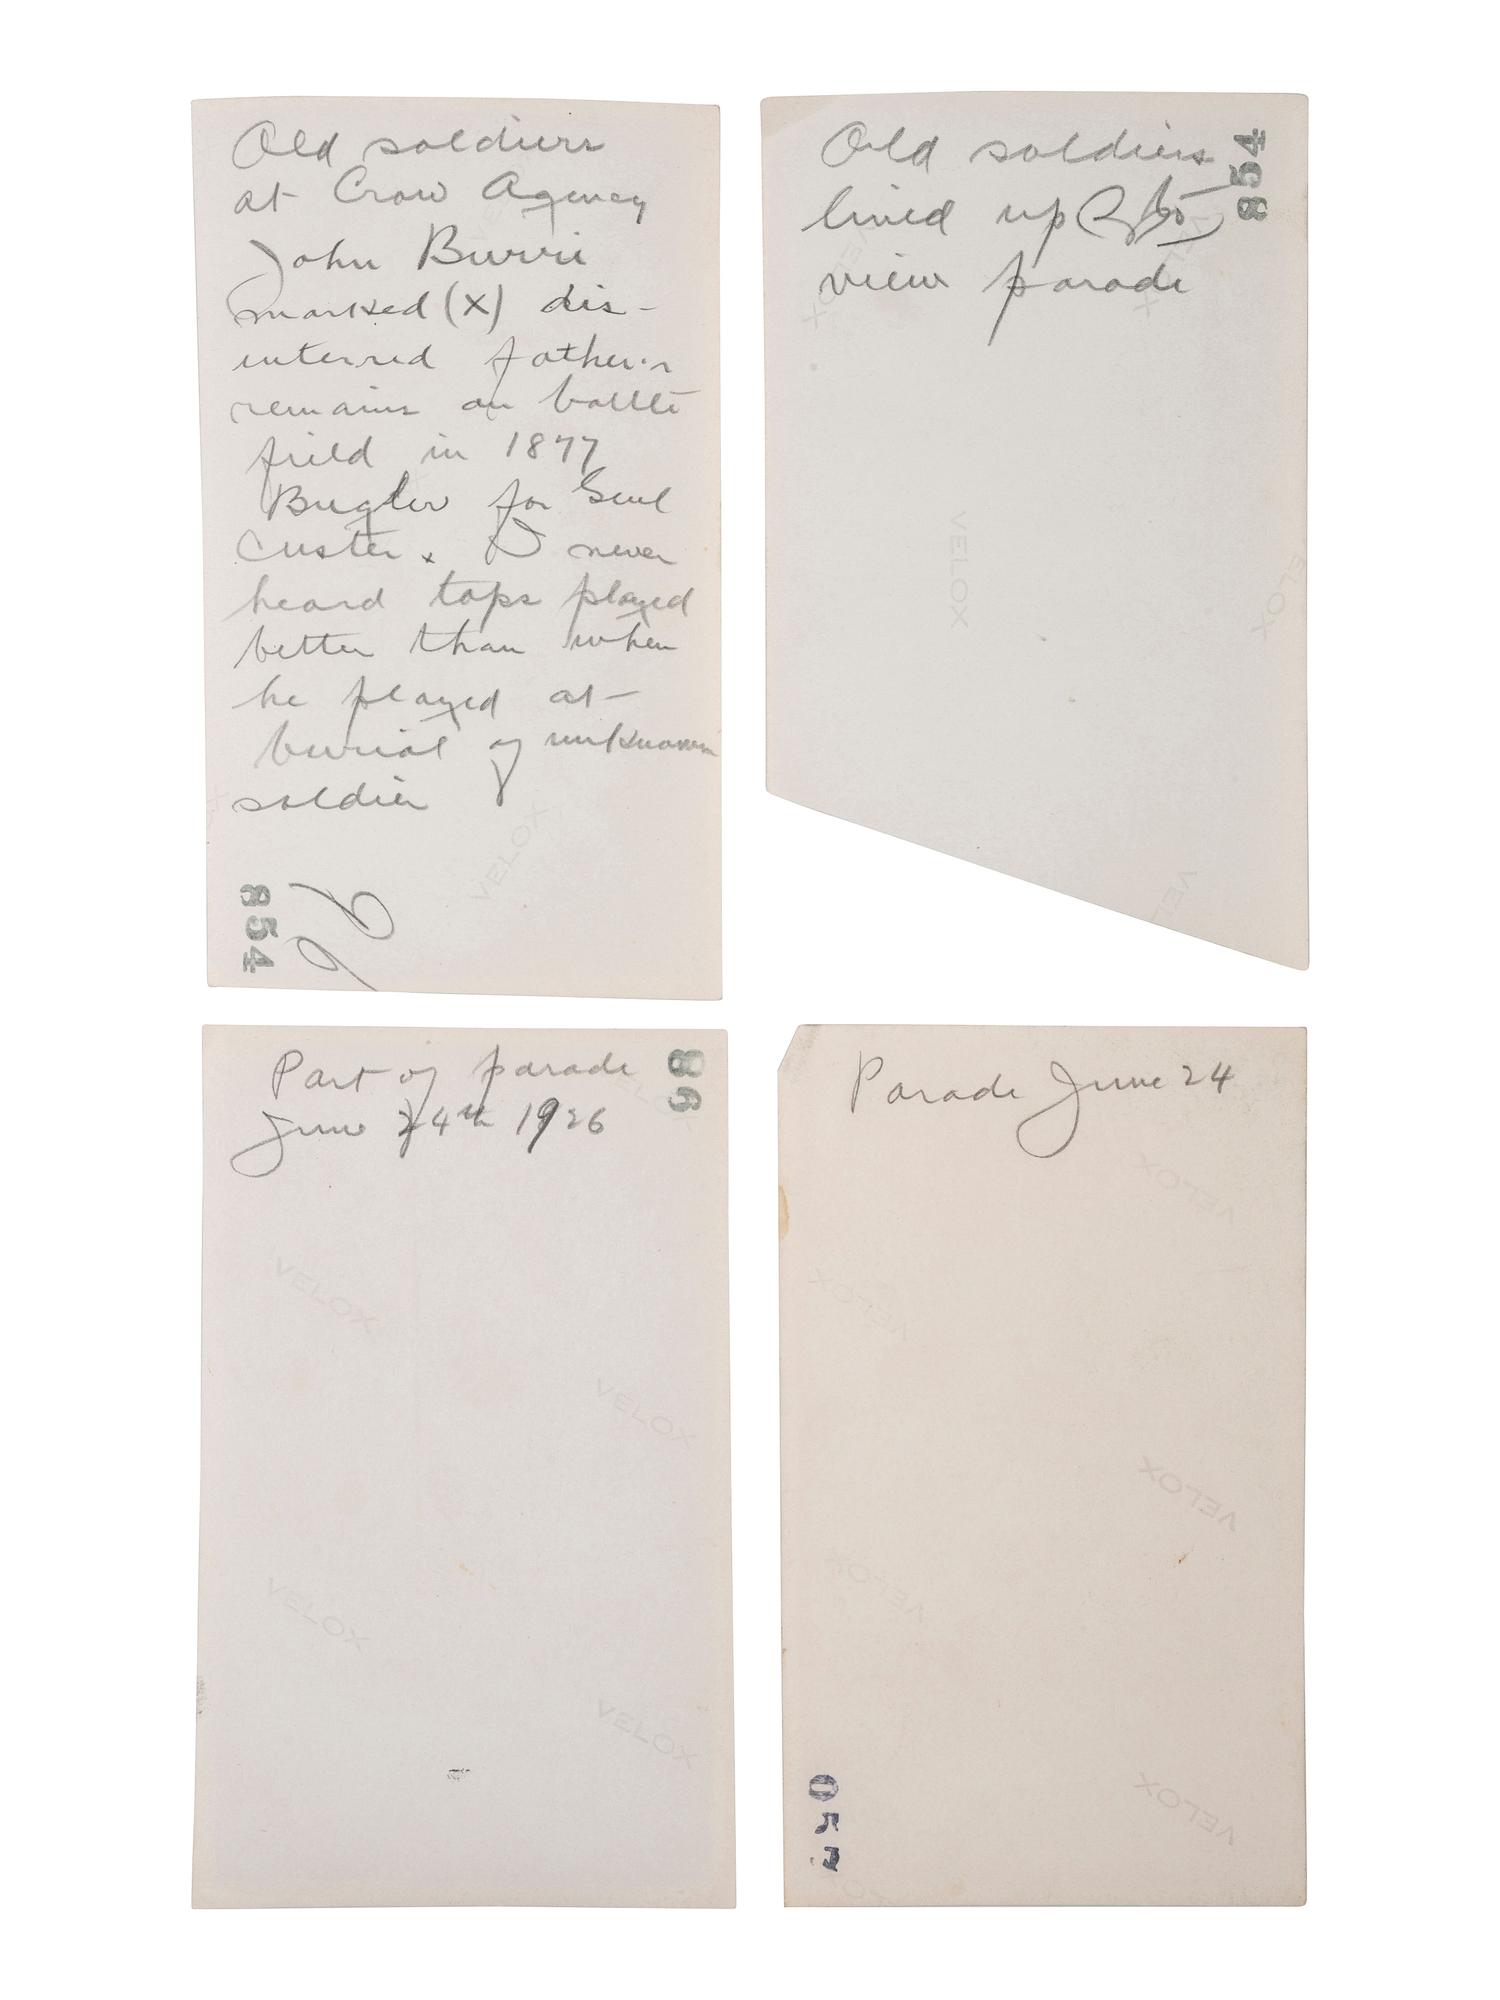 Old soldiers
at Crow Agency
John Burri
marked (x) dis-
interred father's
remains on battle
field in 1877
Bugler for Genl
Custer. I never
heard taps played
better than when
he played at
burial of unknown
soldier
854
Old soldiers
lined up to
view parade
854
VELOX
VELOX
VELOX
Part of parade
June 24th 1926
86
VELOX
VELOX
VELOX
VELOX
Parade June 24
VELOX
VELOX
VELOX
VELOX
VELOX